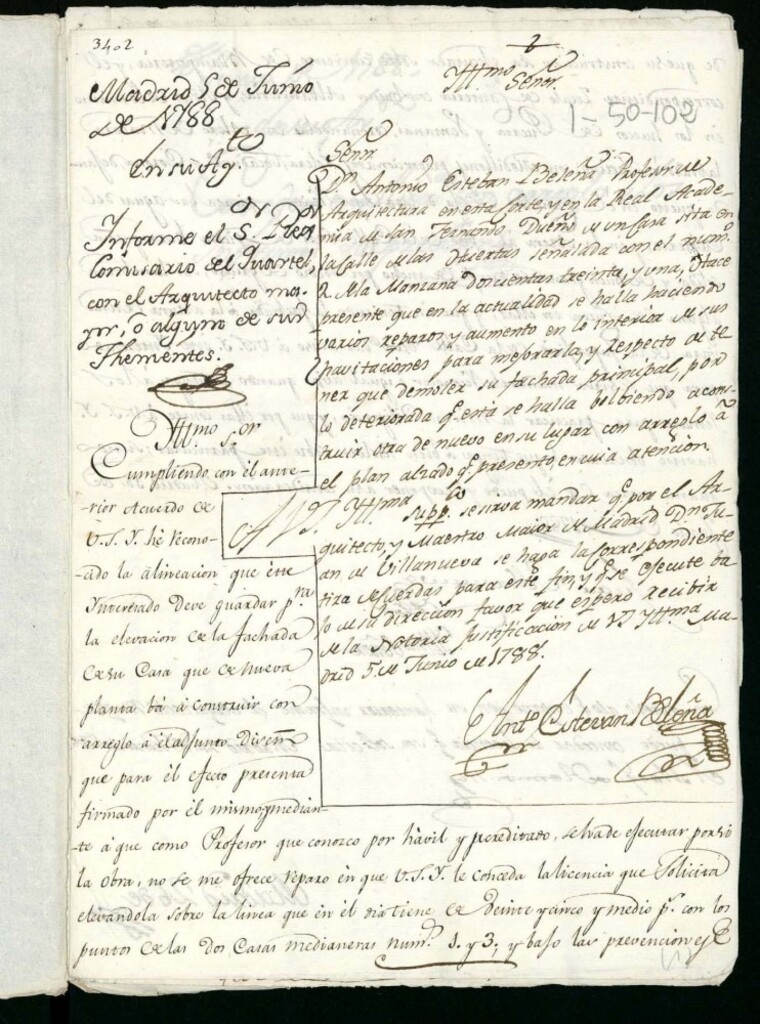 3402
Madrid 5 de Junio
de 1788
En su Ay.to
Informe el S.or Rexor
Comisario del Quartel,
con el Arquitecto ma-
yor, ó alguno de sus
Thenientes.
Yll.mo Señor.
1-50-102
Señor
D.n Antonio Esteban Beleña Profesor de
Arquitectura en esta Corte, y en la Real Acade-
mia de San Fernando Dueño de un Casa sita en
la Calle de las Huertas señalada con el num.o
2. de la Manzana Doscientas treinta, y una, Hace
presente que en la actualidad se halla haciendo
varios reparos y aumento en lo interior de sus
havitaciones para mejorarla, y respecto de te-
ner que demoler su fachada principal, por
lo deteriorada q.e está se halla bolbiendo a cons-
truir otra de nuevo en su lugar con arreglo á
el plan alzado q.e presento, en cuia atencion.
A V.S. Yll.ma Supp.co se sirva mandar q.e por el Ar-
quitecto, y Maestro Maior de Madrid D.n Ju-
an de Villanueva se haga la correspondiente
tira de cuerdas para este fin, y q.e se execute ba-
jo de su dirección favor que espero recibir
de la Notoria Justificacion de V.S. Yll.ma Ma-
drid 5. de Junio de 1788.
Ant.o Estevan Beleña
Yll.mo S.or
Cumpliendo con el ante-
rior Acuerdo de
V.S.Y. hé recono-
cido la alineacion que este
Interesado deve guardar p.ra
la elevacion de la fachada
de su Casa que de nueva
planta bá á construir con
arreglo á el adjunto Diseño
que para el efecto presenta
firmado por el mismo, y median-
te á que como Profesor que conozco por hávil y acreditado, se ha de executar por sí
la obra, no se me ofrece reparo en que V.S.Y. le conceda la licencia que Solicita
elevandola sobre la linea que en el dia tiene de Veinte y cinco y medio p.s con los
puntos de las dos Casas medianeras num.s 1. y 3; y bajo las prevenciones